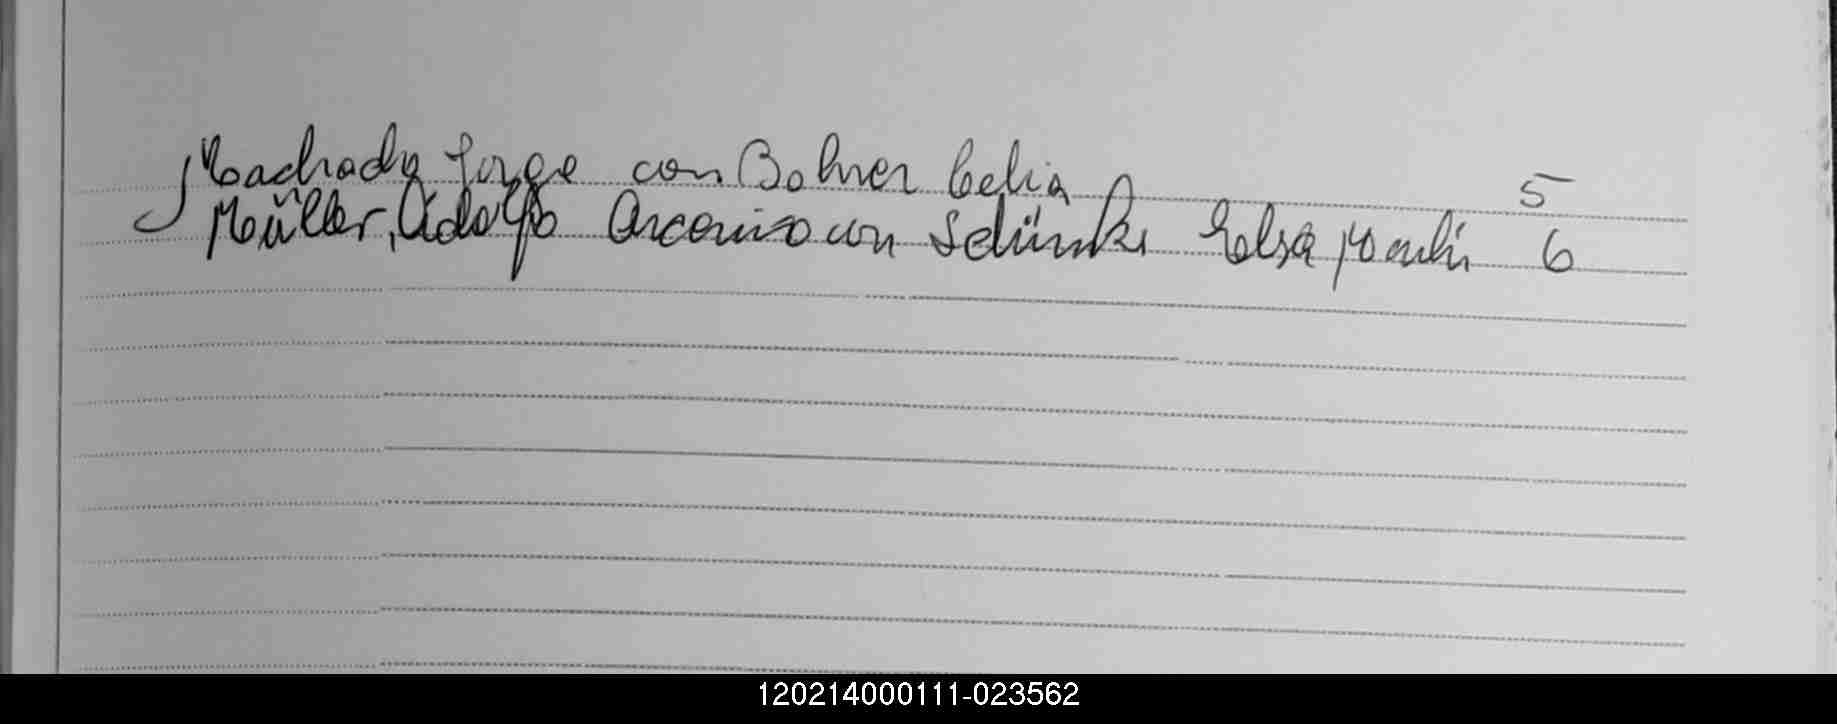 Machado Jorge con Bohrer Celia 5
Müller, Adolfo Arcenio con Schünke Elsa 6
120214000111-023562